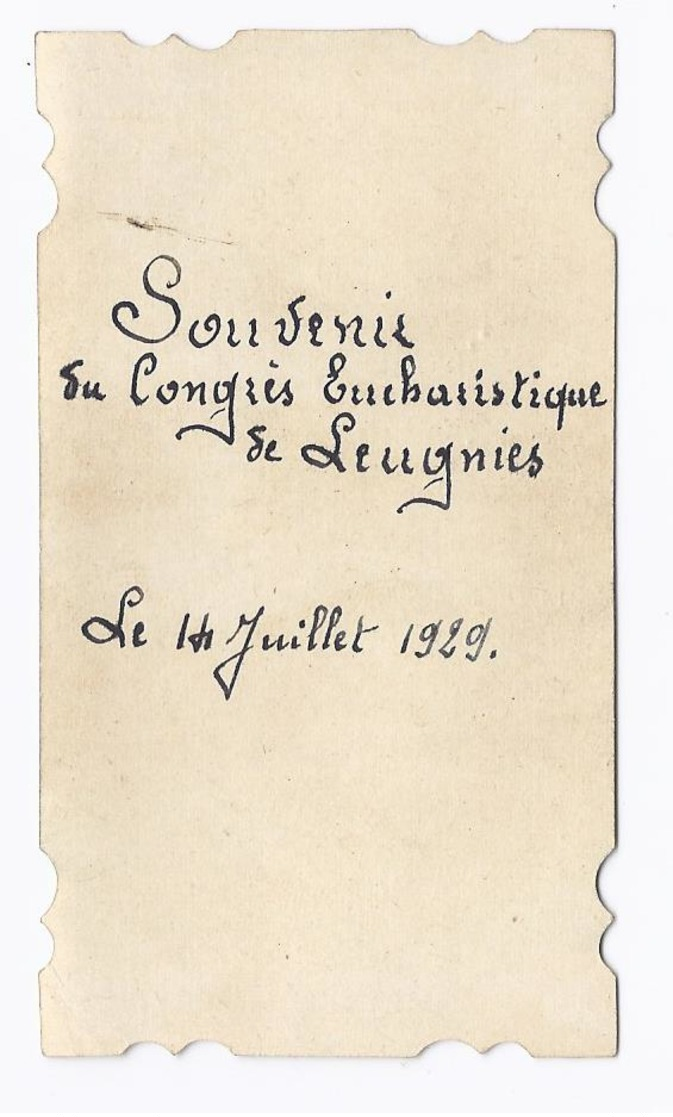 Souvenir
du Congrès Eucharistique
de Leugnies
Le 14 Juillet 1929.